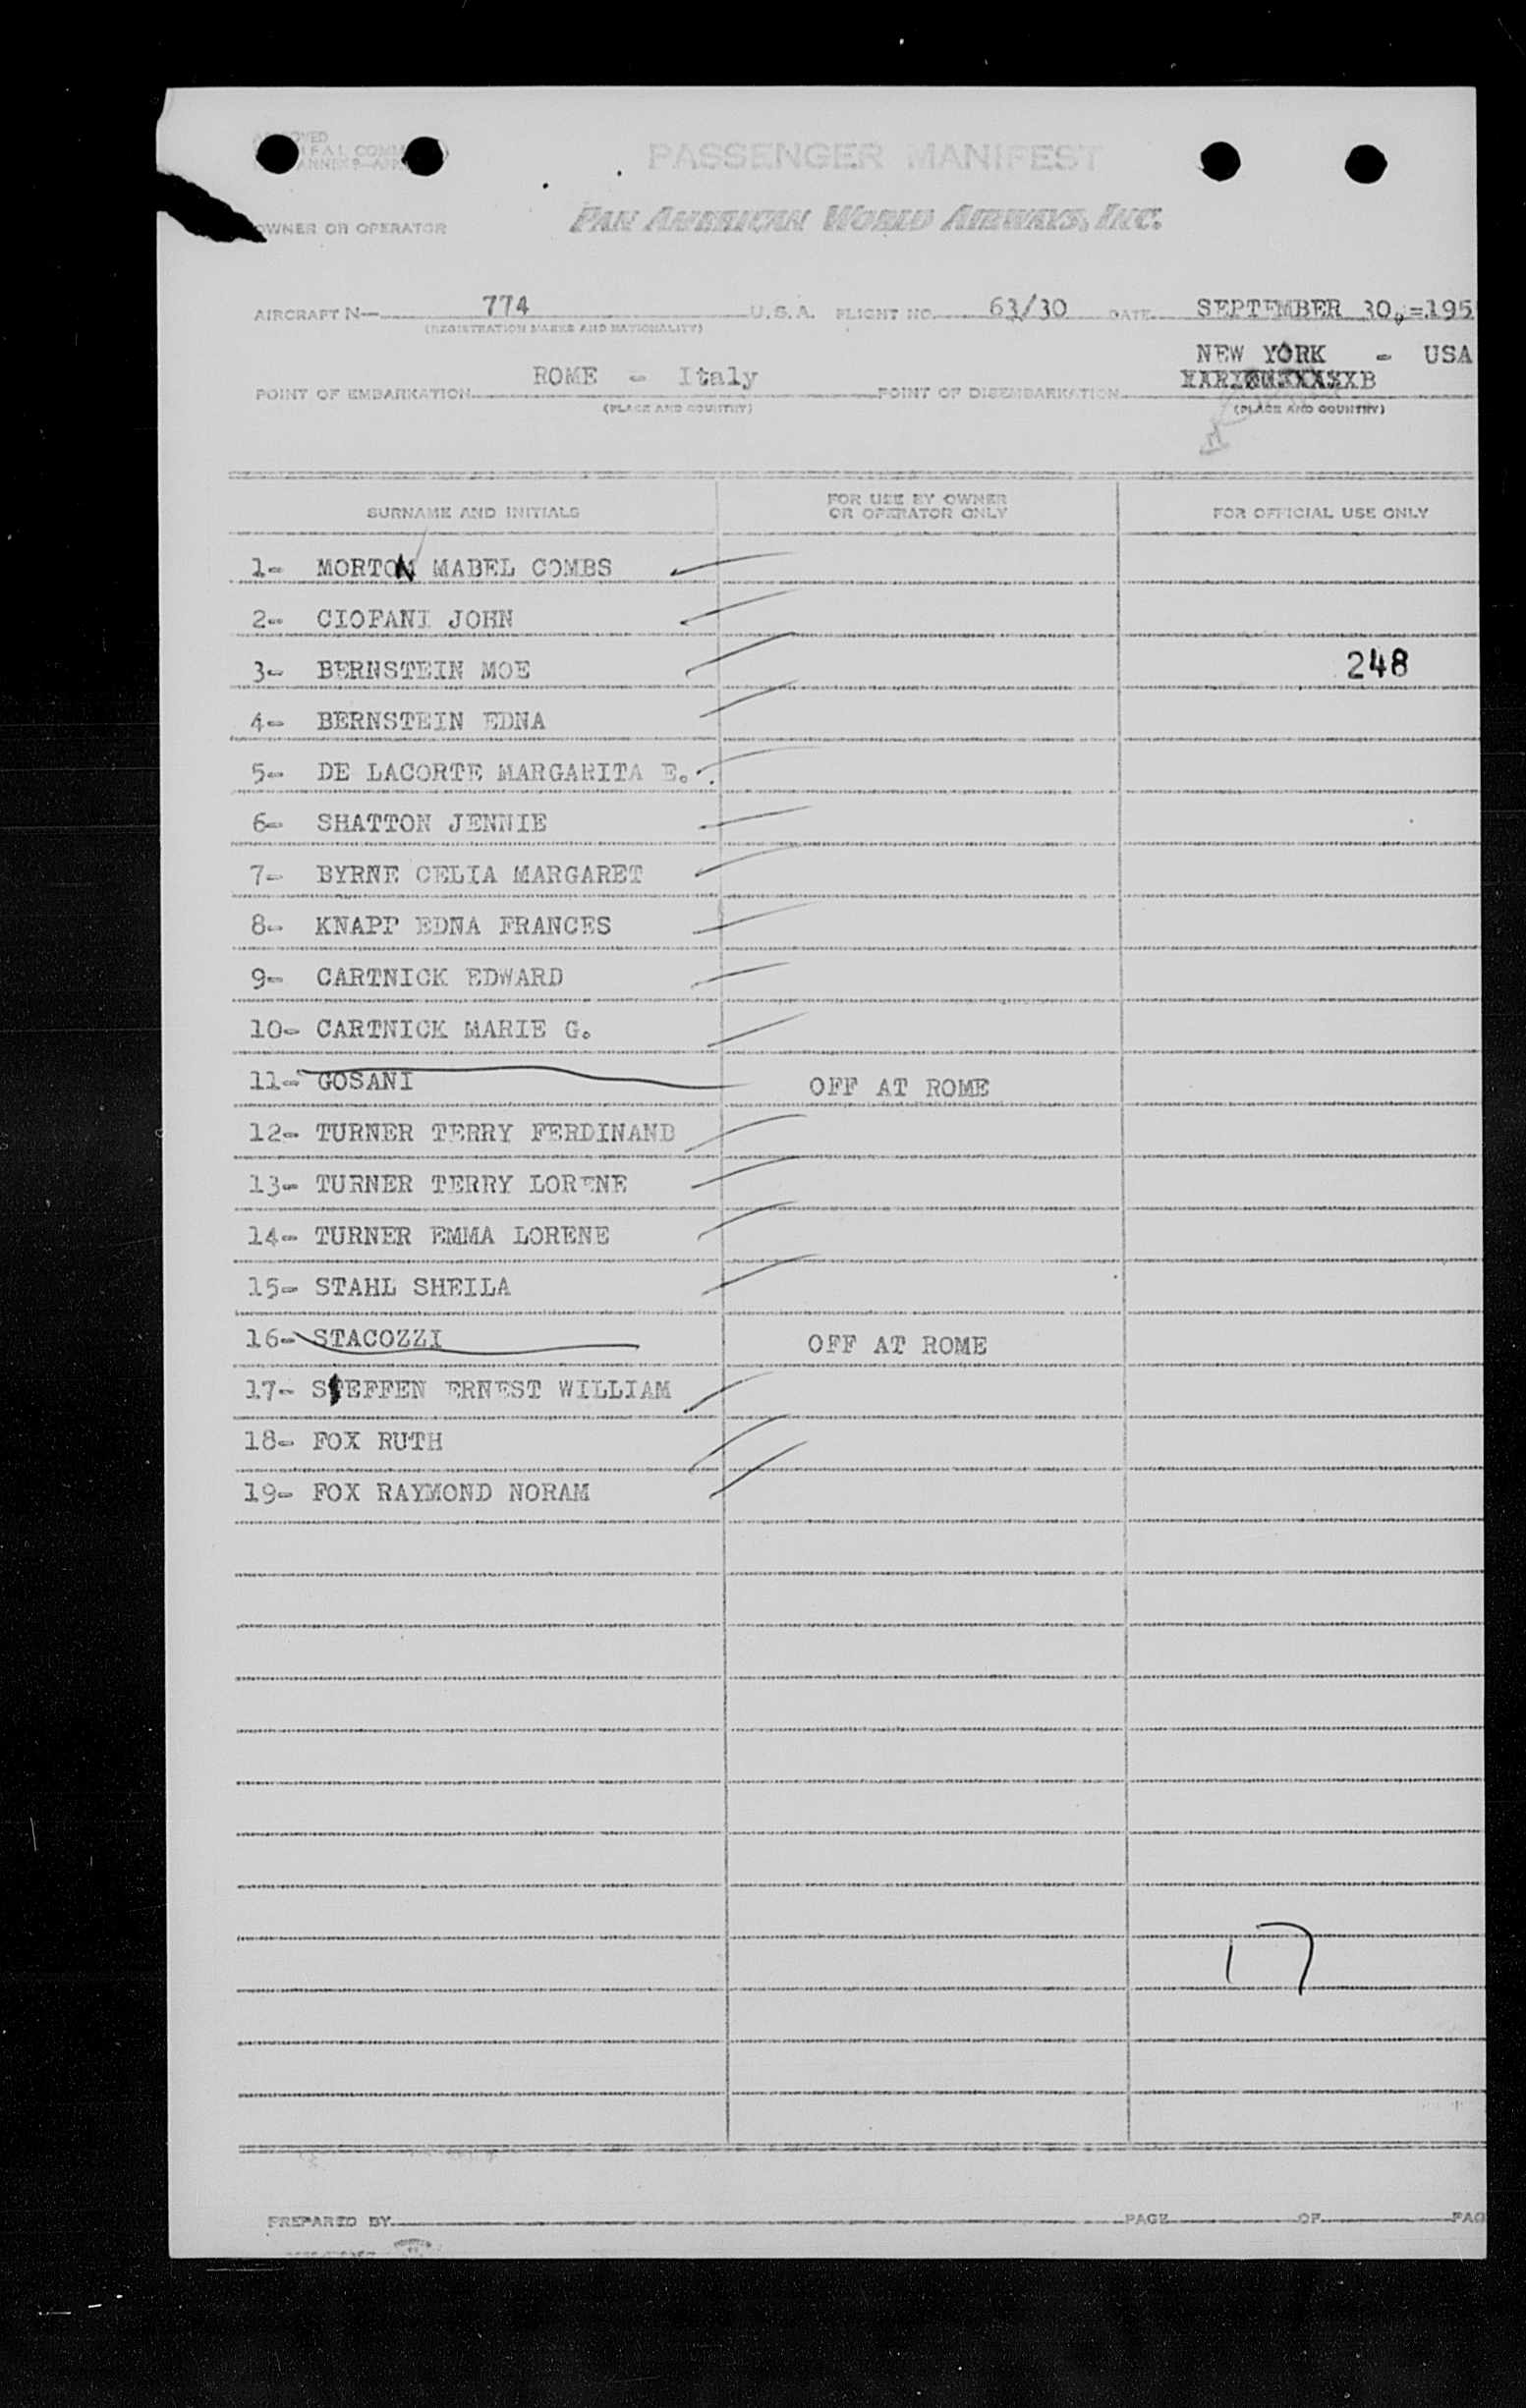 PASSENGER MANIFEST
OWNER OR OPERATOR PAN AMERICAN WORLD AIRWAYS, INC.
AIRCRAFT N— 774 U.S.A. FLIGHT NO. 63/30 DATE SEPTEMBER 30,=195
(REGISTRATION MARKS AND NATIONALITY)
NEW YORK - USA
POINT OF EMBARKATION ROME - Italy POINT OF DISEMBARKATION
(PLACE AND COUNTRY) (PLACE AND COUNTRY)
SURNAME AND INITIALS FOR USE BY OWNER OR OPERATOR ONLY FOR OFFICIAL USE ONLY
1- MORTON MABEL COMBS
2- CIOFANI JOHN
3- BERNSTEIN MOE 248
4- BERNSTEIN EDNA
5- DE LACORTE MARGARITA E.
6- SHATTON JENNIE
7- BYRNE CELIA MARGARET
8- KNAPP EDNA FRANCES
9- CARTNICK EDWARD
10- CARTNICK MARIE G.
11- GOSANI OFF AT ROME
12- TURNER TERRY FERDINAND
13- TURNER TERRY LORENE
14- TURNER EMMA LORENE
15- STAHL SHEILA
16- STACOZZI OFF AT ROME
17- STEFFEN ERNEST WILLIAM
18- FOX RUTH
19- FOX RAYMOND NORAM
17
PREPARED BY PAGE OF PAG